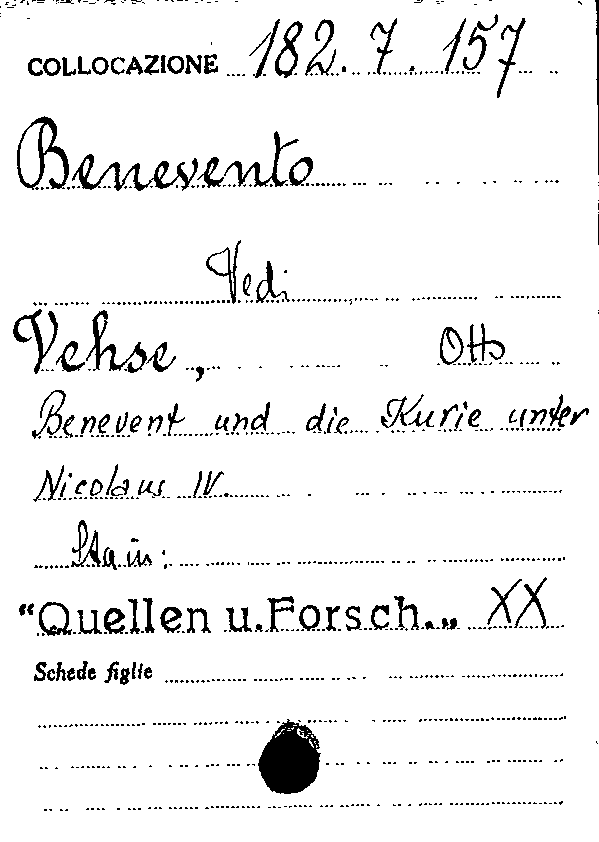 COLLOCAZIONE 182.7.157
Benevento
Vedi
Vehse, Otto
Benevent und die Kurie unter
Nicolaus IV.
Sta in:
"Quellen u. Forsch..„ XX
Schede figlie